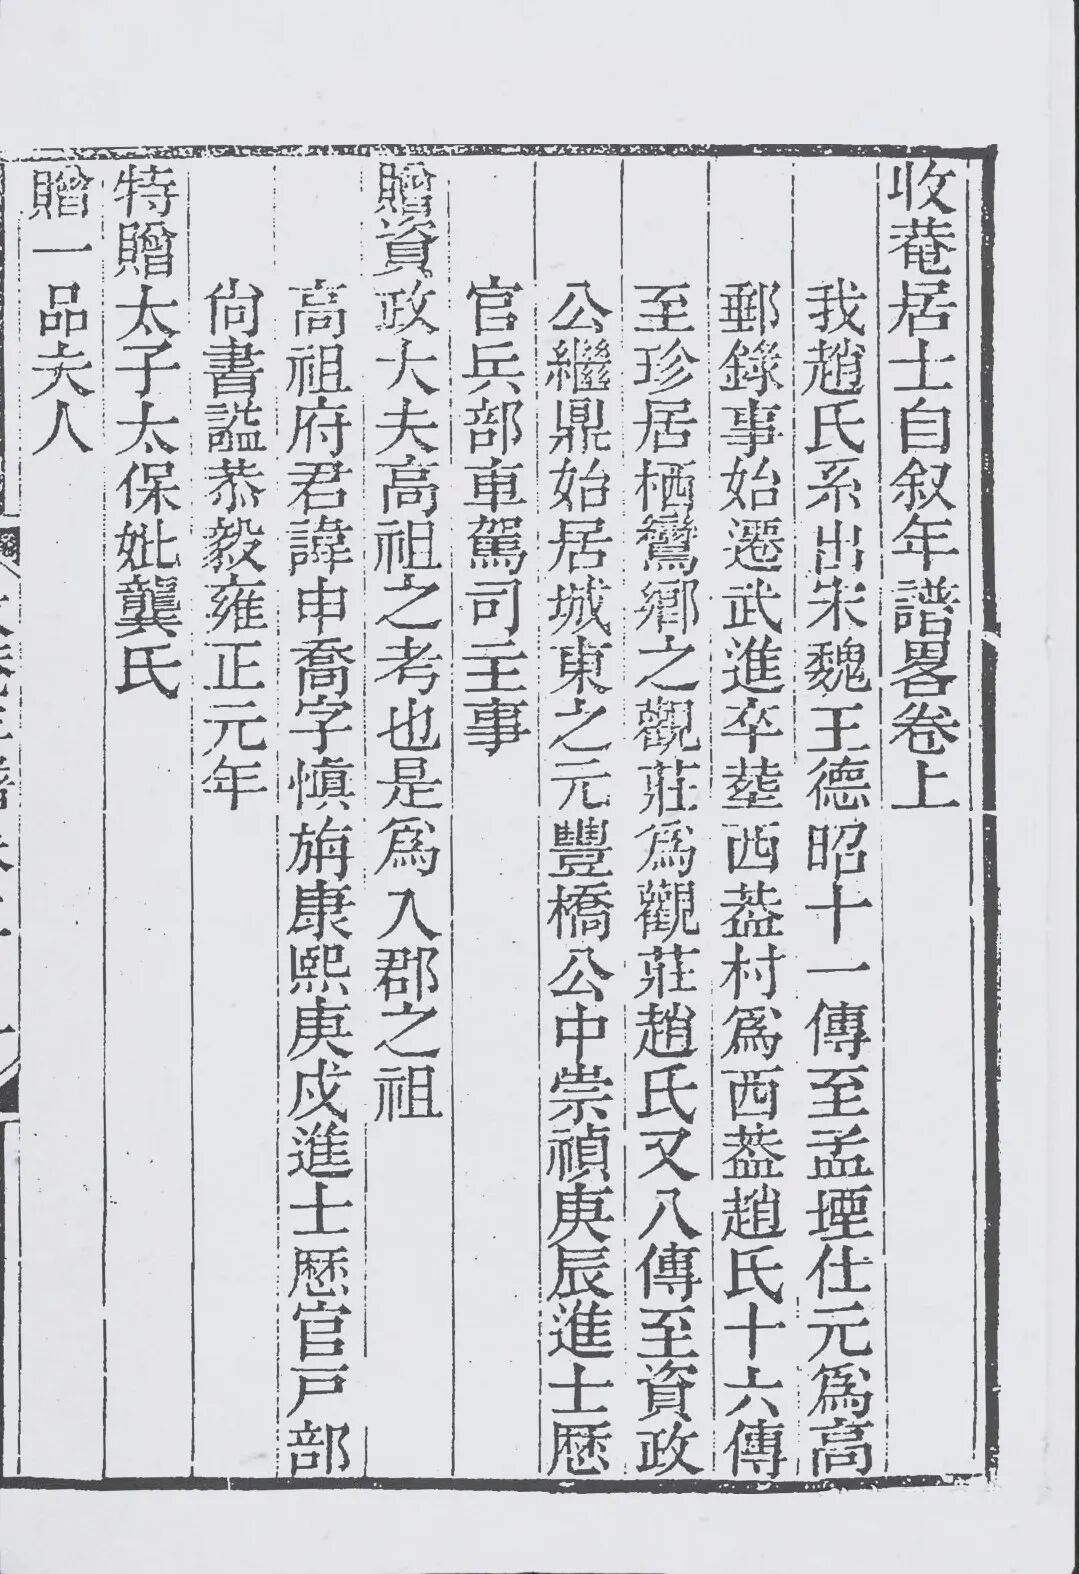 收菴居士自叙年譜畧卷上
我趙氏系出宋魏王德昭十一傳至孟堙仕元爲高
郵錄事始遷武進卒塟西葢村爲西葢趙氏十六傳
至珍居栖鸞鄉之觀莊爲觀莊趙氏又八傳至資政
公繼鼎始居城東之元豐橋公中崇禎庚辰進士歷
官兵部車駕司主事
贈資政大夫高祖之考也是爲入郡之祖
高祖府君諱申喬字愼旃康熙庚戌進士歷官戸部
尙書謚恭毅雍正元年
特贈太子太保妣龔氏
贈一品夫人